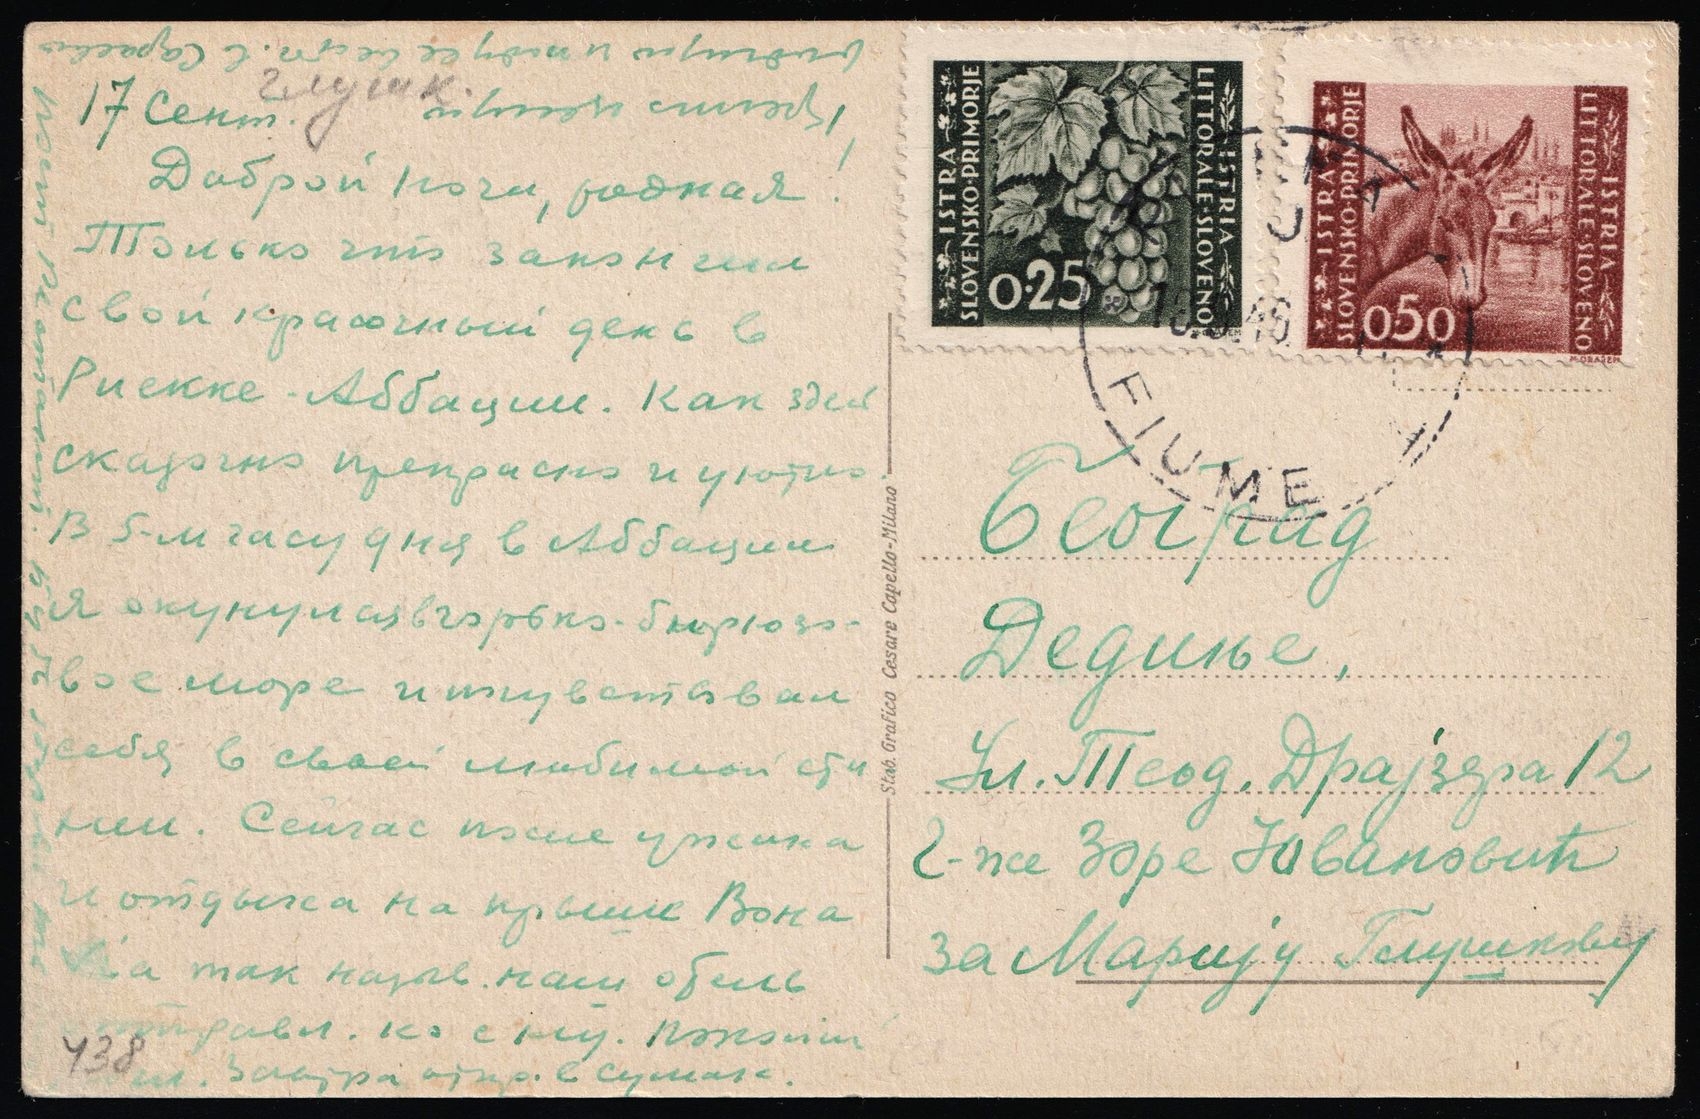 17 Сент.
Глушк.
Доброй ночи, родная!
Только что закончил
свой красочный день в
Риекке-Аббации. Как здесь
сказочно прекрасно и уютно.
В 5-м часу дня в Аббации
я окунулся в горько-бирюзо-
вое море и почувствовал
себя в своей любимой сти
хии. Сейчас после ужина
и отдыха на крыше
а так назыв. наш отель
отправл. ко сну. Покойной
Завтра отпр. в Сушак.
438
ISTRA
SLOVENSKO PRIMORJE
ISTRIA
LITORALE SLOVENO
0·25
ISTRA
SLOVENSKO PRIMORJE
ISTRIA
LITORALE SLOVENO
0.50
M. ORAŠEM
FIUME
Stab. Grafico Cesare Capello-Milano
Београд
Дедиње,
Ул. Теод. Драјзера 12
Г-же Зоре Јовановић
за Марију Глушкову